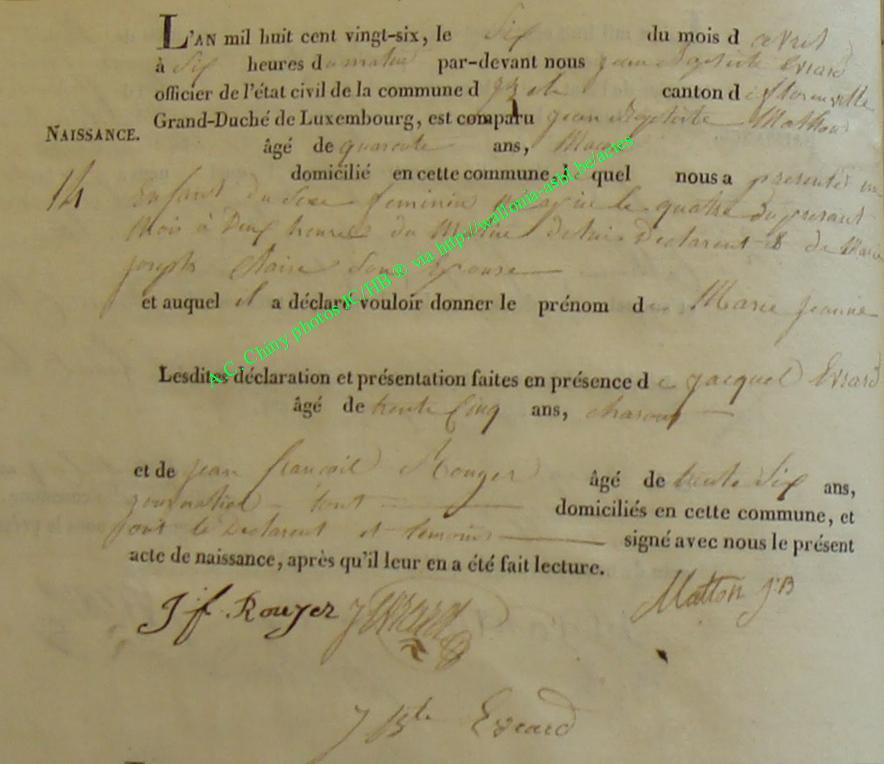 L'AN mil huit cent vingt-six, le Six du mois d avril
à Six heures du matin par-devant nous jean Baptiste Evrard
officier de l'état civil de la commune d canton d e florenville
Grand-Duché de Luxembourg, est comparu jean Baptiste Mathon
NAISSANCE.
âgé de quarente ans,
domicilié en cette commune, le quel nous a presenté un
14
Enfant du Sexe feminin né le quatre du presant
Mois à Deux heures du Matin de lui Declarent & de Marie
joseph Claire Son Epouse
et auquel il a déclaré vouloir donner le prénom de Marie jeanne
Lesdites déclaration et présentation faites en présence de jacques Evrard
âgé de trente Cinq ans, charon
et de jean francois Rouyer âgé de trente Six ans,
journalier domiciliés en cette commune, et
ont le Declarent et temoins signé avec nous le présent
acte de naissance, après qu'il leur en a été fait lecture.
J f Rouyer J Evrard Matton J B
J Bte Evrard
A.C. Chiny photos JC/HB ® via http://wallonia-asbl.be/actes